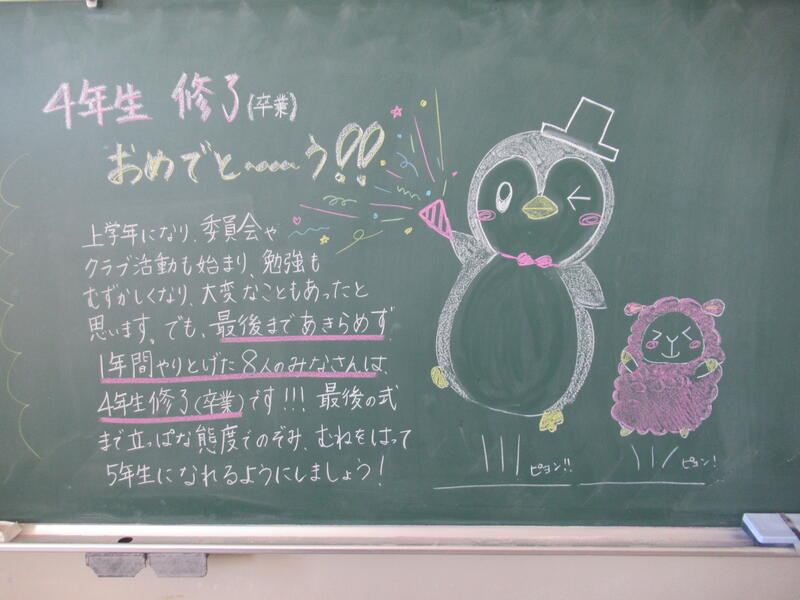 4年生 修了(卒業)
おめでと〜〜〜う!!
上学年になり、委員会や
クラブ活動も始まり、勉強も
むずかしくなり、大変なこともあったと
思います。でも、最後まであきらめず
1年間やりとげた8人のみなさんは、
4年生修了(卒業)です!!! 最後の式
まで立っぱな態度でのぞみ、むねをはって
5年生になれるようにしましょう!
ピョン!!
ピョン!